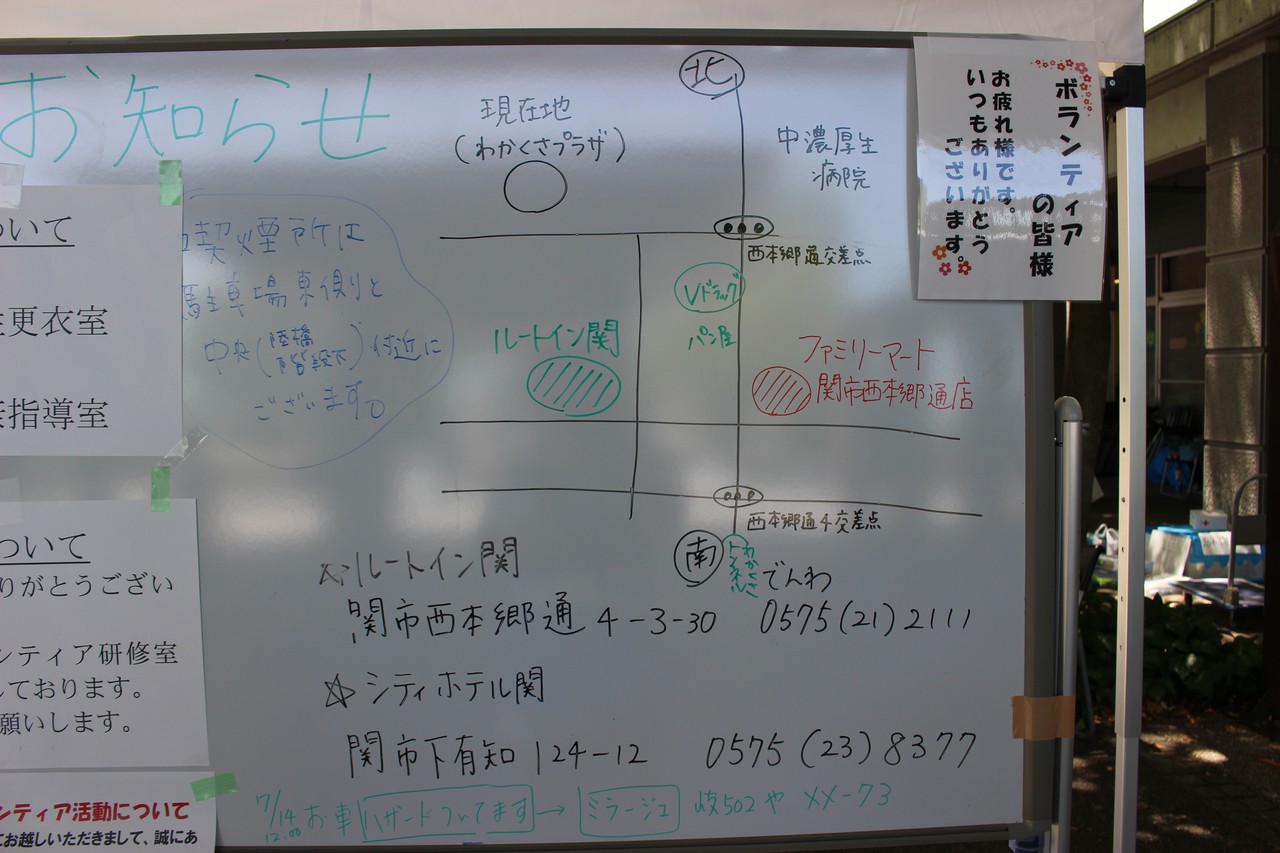 お知らせ
ついて
更衣室
指導室
ついて
りがとうござい
ンティア研修室
しております。
願いします。
ンティア活動について
てお越しいただきまして、誠にあ
喫煙所は
駐車場東側と
中央(陸橋階段下)付近に
ございます。
現在地
(わかくさプラザ)
北
中濃厚生
病院
西本郷通交差点
Vドラッグ
パン屋
ルートイン関
ファミリーマート
関市西本郷通店
西本郷通4交差点
南
わかくさ
トンネル
☆ルートイン関
でんわ
関市西本郷通 4-3-30 0575(21)2111
☆シティホテル関
関市下有知 124-12 0575(23)8377
7/14
12:00
お車 ハザードついてます → ミラージュ 岐502や XX-73
ボランティア
の皆様
お疲れ様です。
いつもありがとう
ございます。